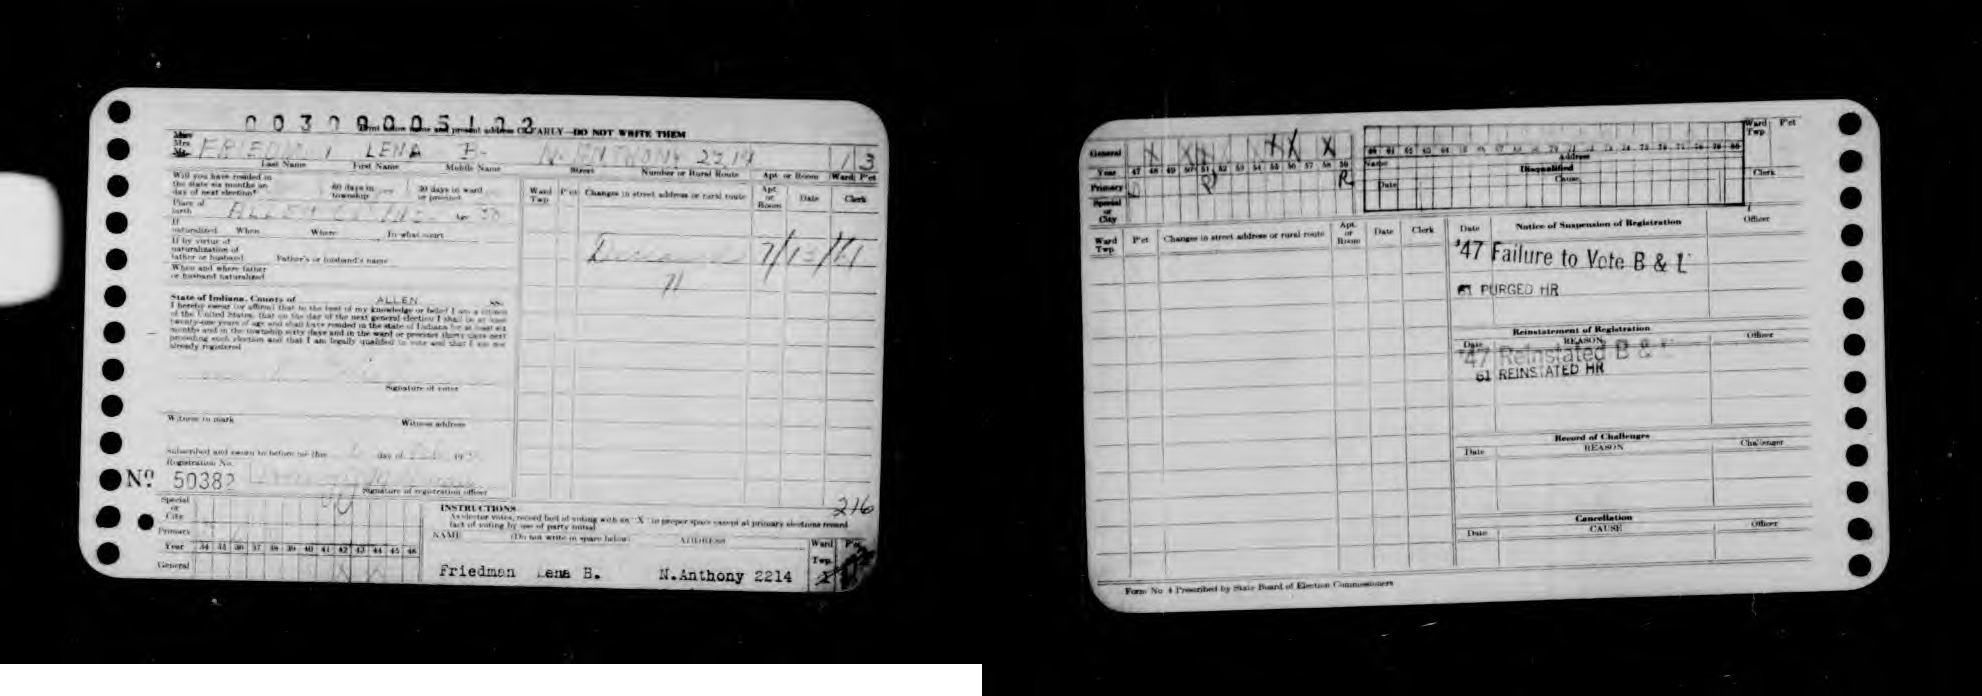 003090051
Print below name and present address CLEARLY—DO NOT WRITE THEM
Miss
Mrs.
Mr.
LENA B. N. ANTHONY 2214 1 3
Last Name First Name Middle Name Street Number or Rural Route Apt. or Room Ward P'ct
Will you have resided in
the state six months on
day of next election?
60 days in
township
30 days in ward
or precinct
Place of
birth ALLEN
If
naturalized When Where In what court
If by virtue of
naturalization of
father or husband Father's or husband's name
When and where father
or husband naturalized
State of Indiana, County of ALLEN ss.
I hereby swear (or affirm) that to the best of my knowledge or belief I am a citizen
of the United States, that on the day of the next general election I shall be at least
twenty-one years of age and shall have resided in the state of Indiana for at least six
months and in the township sixty days and in the ward or precinct thirty days next
preceding such election and that I am legally qualified to vote and that I am not
already registered
Signature of voter
Witness to mark Witness address
Subscribed and sworn to before me this day of 19
Registration No.
No. 50382
Signature of registration officer
Ward Twp. P'ct Changes in street address or rural route Apt. or Room Date Clerk
7/13/61
216
Special
or
City
Primary
Year 34 35 36 37 38 39 40 41 42 43 44 45 46
General X X
INSTRUCTIONS
As elector votes, record fact of voting with an "X" in proper space except at primary elections record
fact of voting by use of party initial
NAME (Do not write in space below) ADDRESS Ward Twp. P'ct
Friedman Lena B. N.Anthony 2214
General
Year 47 48 49 50 51 52 53 54 55 56 57 58 59
Primary R
Special
or
City
60 61 62 63 64 65 66 67 68 69 70 71 72 73 74 75 76 77 78 79 80
Name Address
Disqualified
Date Cause
Ward Twp. P'ct
Clerk
Ward Twp. P'ct Changes in street address or rural route Apt. or Room Date Clerk
Date Notice of Suspension of Registration Officer
'47 Failure to Vote B & L
61 PURGED HR
Reinstatement of Registration
Date REASON Officer
'47 Reinstated B & L
61 REINSTATED HR
Record of Challenges
Date REASON Challenger
Cancellation
Date CAUSE Officer
Form No. 4 Prescribed by State Board of Election Commissioners